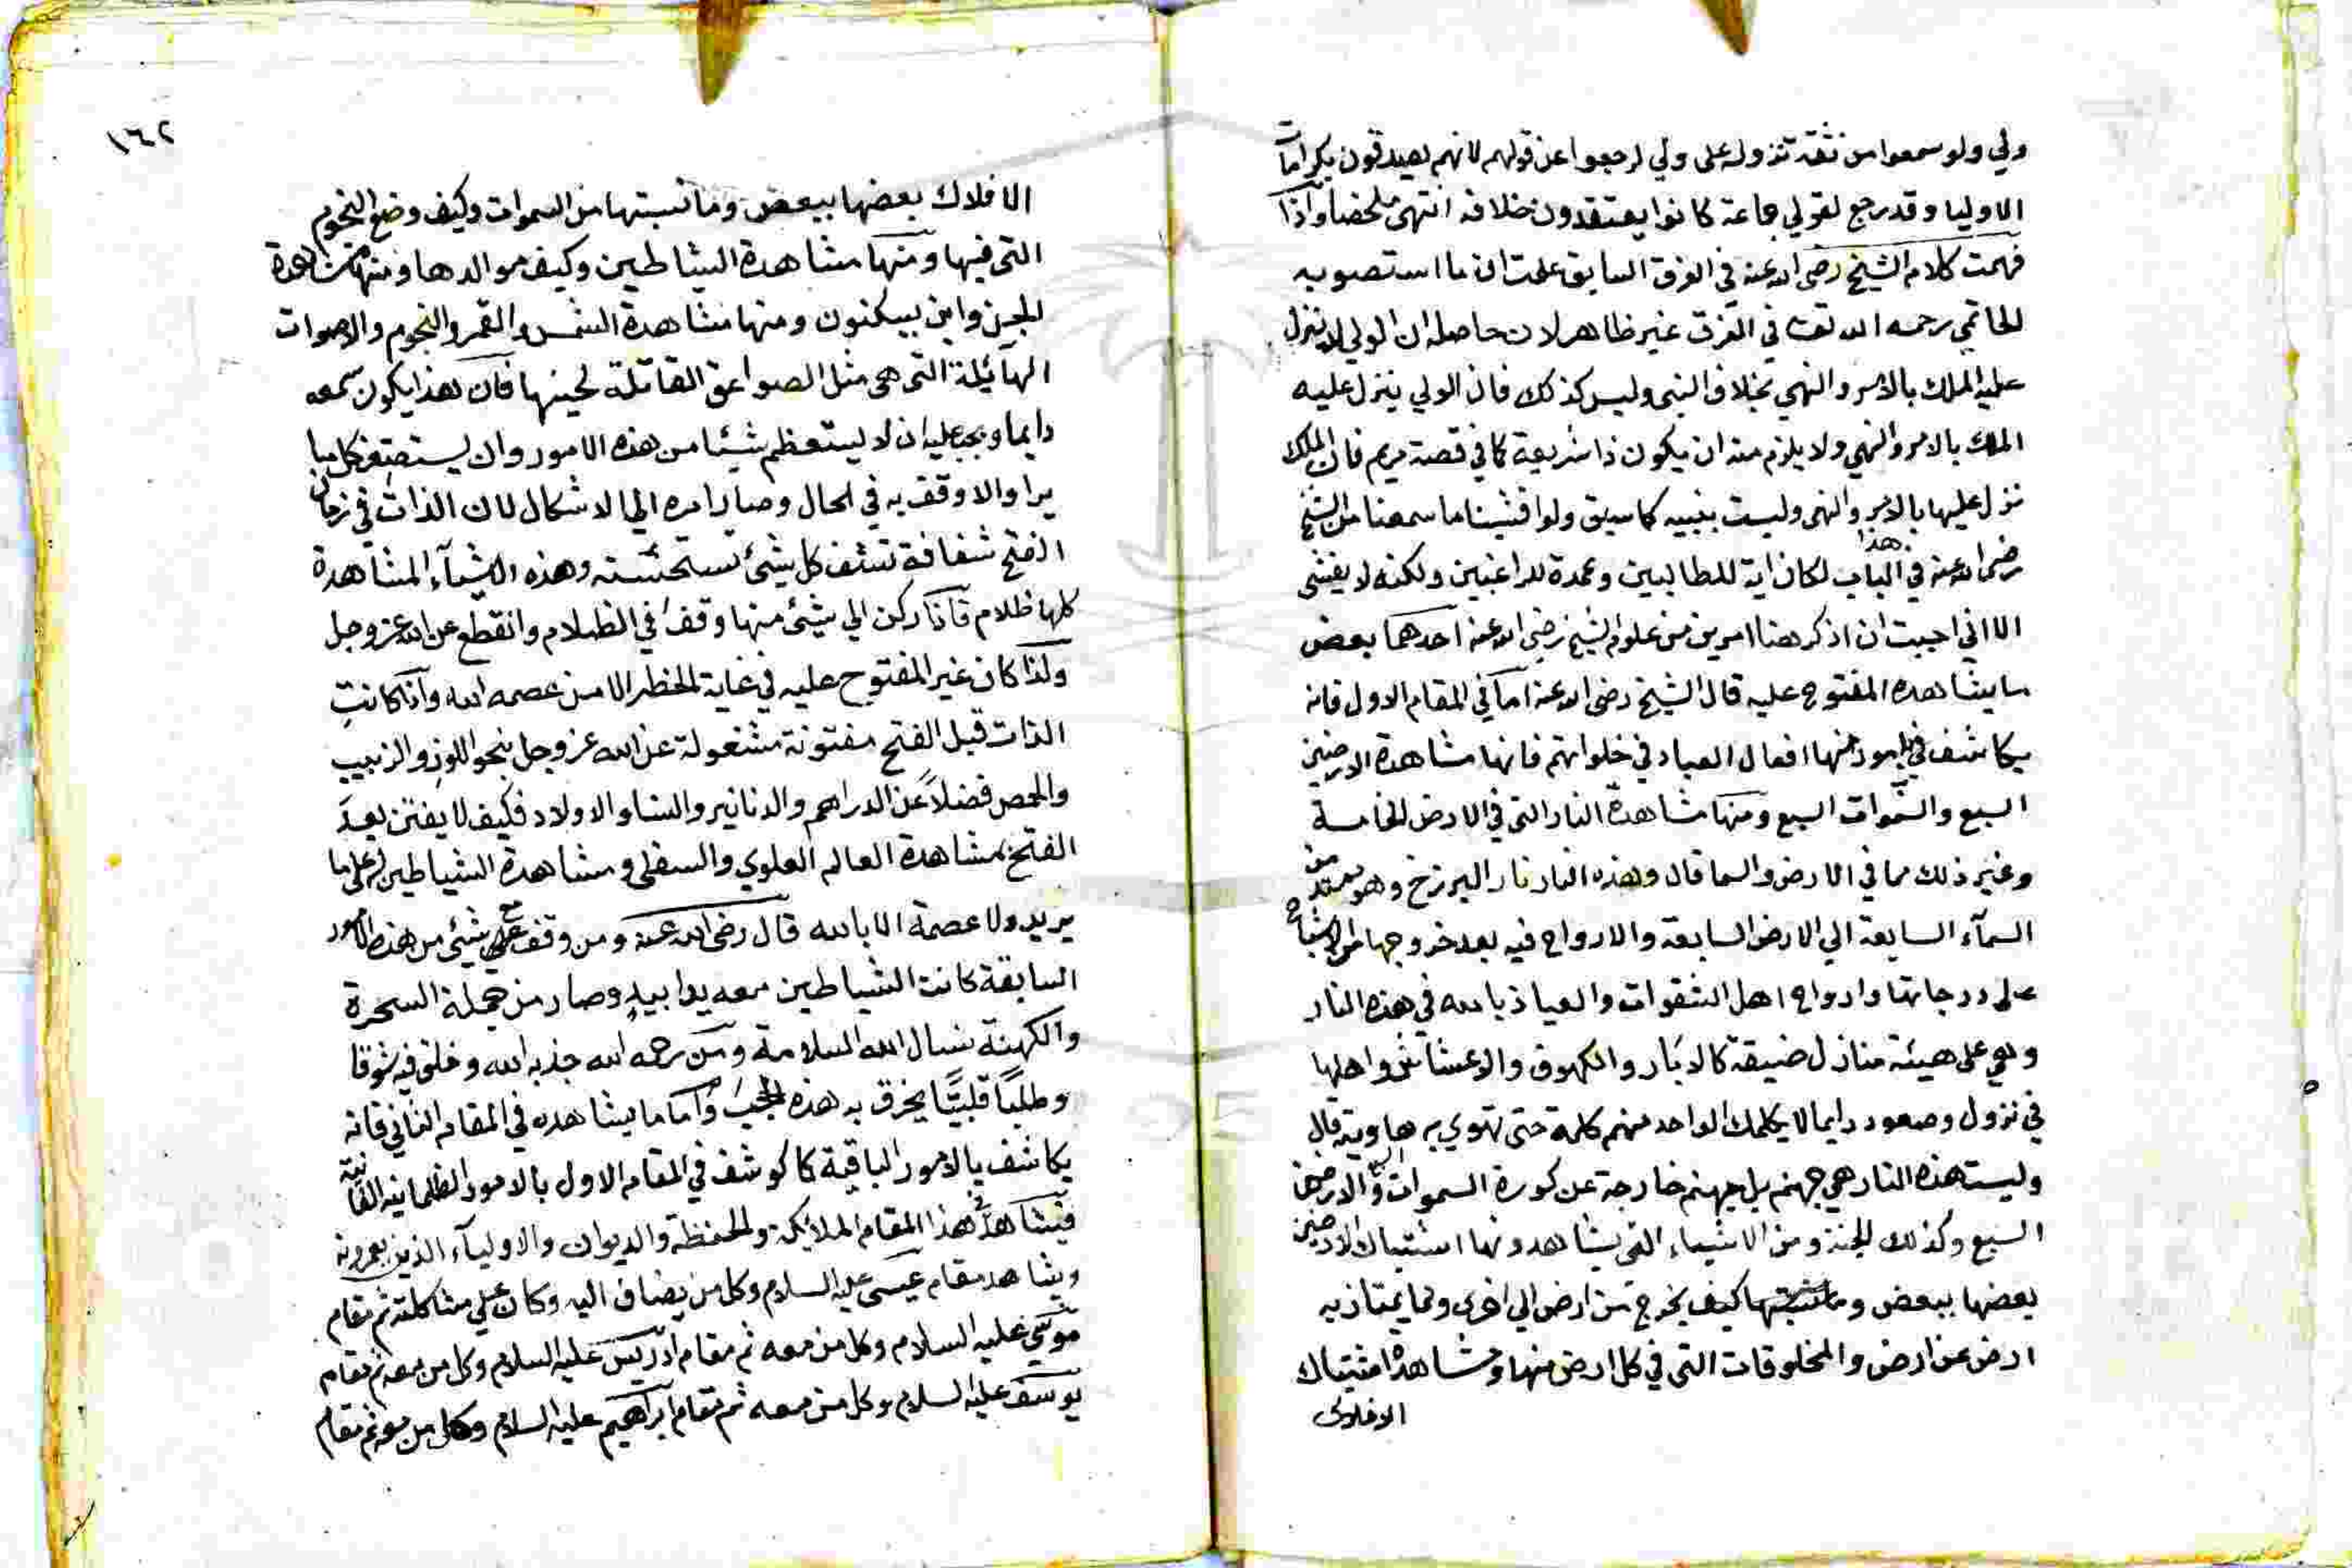 ولي ولو سمعوا من ثقة نزوله على ولي لرجعوا عن قولهم لانهم يصدقون بكرامات
الاوليا وقد رجع لقولي جماعة كانوا يعتقدون خلافه انتهى ملخصا واذا
فهمت كلام الشيخ رضى الله عنه في الفرق السابق علمت ان ما استصوبه
الحاتمي رحمه الله تعا في الفرق غير ظاهر لان حاصله ان الولي لا ينزل
عليه الملك بالامر والنهي بخلاف النبى وليس كذلك فان الولي ينزل عليه
الملك بالامر والنهي ولا يلزم منه ان يكون ذا شريعة كما في قصة مريم فان الملك
نزل عليها بالامر والنهى وليست بنبيه كما سبق ولو افشينا ما سمعنا من الشيخ
رضى الله عنه في هذا الباب لكان اية للطالبين وعمدة للراغبين ولكنه لا يفشى
الا اني احببت ان اذكر هنا امرين من علوم الشيخ رضى الله عنه احدهما بعض
ما يشاهده المفتوح عليه قال الشيخ رضى الله عنه اما في المقام الاول فانه
يكاشف في امور منها افعال العباد في خلواتهم فانها مشاهدة الارضين
السبع والسموات السبع ومنها مشاهدة النار التى في الارض الخامسة
وغير ذلك مما في الارض والسما قال وهذه النار نار البرزخ وهو ممتد من
السمآء السابعة الي الارض السابعة والارواح فيه بعد خروجها من الاشباح
على درجاتها وارواح اهل الشقوات والعياذ بالله في هذه النار
وهي على هيئة منازل ضيقة كالابار والكهوف والاعشاش واهلها
في نزول وصعود دايما لا يكلمك الواحد منهم كلمة حتى تهوي به هاويته قال
وليست هذه النار هي جهنم بل جهنم خارجة عن كورة السموات السبع والارضين
السبع وكذلك الجنة ومن الاشياء التى يشاهدونها اشتباك الارضين
بعضها ببعض وما نسبتها كيف يخرج من ارض الي اخرى وما يمتاز به
ارض عن ارض والمخلوقات التى في كل ارض منها ومشاهدة اشتباك
الافلاك
١٦٢
الافلاك بعضها ببعض وما نسبتها من السموات وكيف وضع النجوم
التى فيها ومنها مشاهدة الشياطين وكيف موالدها ومنها مشاهدة
الجن واين يسكنون ومنها مشاهدة الشمس والقمر والنجوم والاصوات
الهائلة التى هى مثل الصواعق القاتلة لحينها فان هذا يكون سمعه
دايما ويجب عليه ان لا يستعظم شيئا من هذه الامور وان يستصغر كل ما
يراه والا وقف به في الحال وصار امره الي الاشكال لان الذات في زمان
الفتح شفافة تشف كل شيئ تستحسنه وهذه الاشيآء المشاهدة
كلها ظلام فاذا ركن الي شيئ منها وقف في الظلام وانقطع عن الله عز وجل
ولذا كان غير المفتوح عليه في غاية الخطر الا من عصمه الله واذا كانت
الذات قبل الفتح مفتونة مشغولة عن الله عز وجل بنحو اللوز والزبيب
والحمص فضلاً عن الدراهم والدنانير والنسا والاولاد فكيف لا يفتن بعد
الفتح بمشاهدة العالم العلوي والسفلى ومشاهدة الشياطين على ما
يريد ولا عصمة الا بالله قال رضى الله عنه ومن وقف مع شيئ من هذه الامور
السابقة كانت الشياطين معه يدا بيدٍ وصار من جملة السحرة
والكهنة نسال الله السلامة ومن رحمه الله جذبه الله وخلق فيه شوقا
وطلبًا قلبيًا يخرق به هذه الحجب واما ما يشاهده في المقام الثاني فانه
يكاشف بالامور الباقية كما كوشف في المقام الاول بالامور الظلمانيه الفانية
فيشاهد في هذا المقام الملائكة والحفظة والديوان والاوليآء الذين يعمرونه
ويشاهد مقام عيسى عليه السلام وكل من يضاف اليه وكان علي مشاكلته ثم مقام
موسى عليه السلام وكل من معه ثم مقام ادريس عليه السلام وكل من معه ثم مقام
يوسف عليه السلام وكل من معه ثم مقام ابراهيم عليه السلام وكل من معه ثم مقام